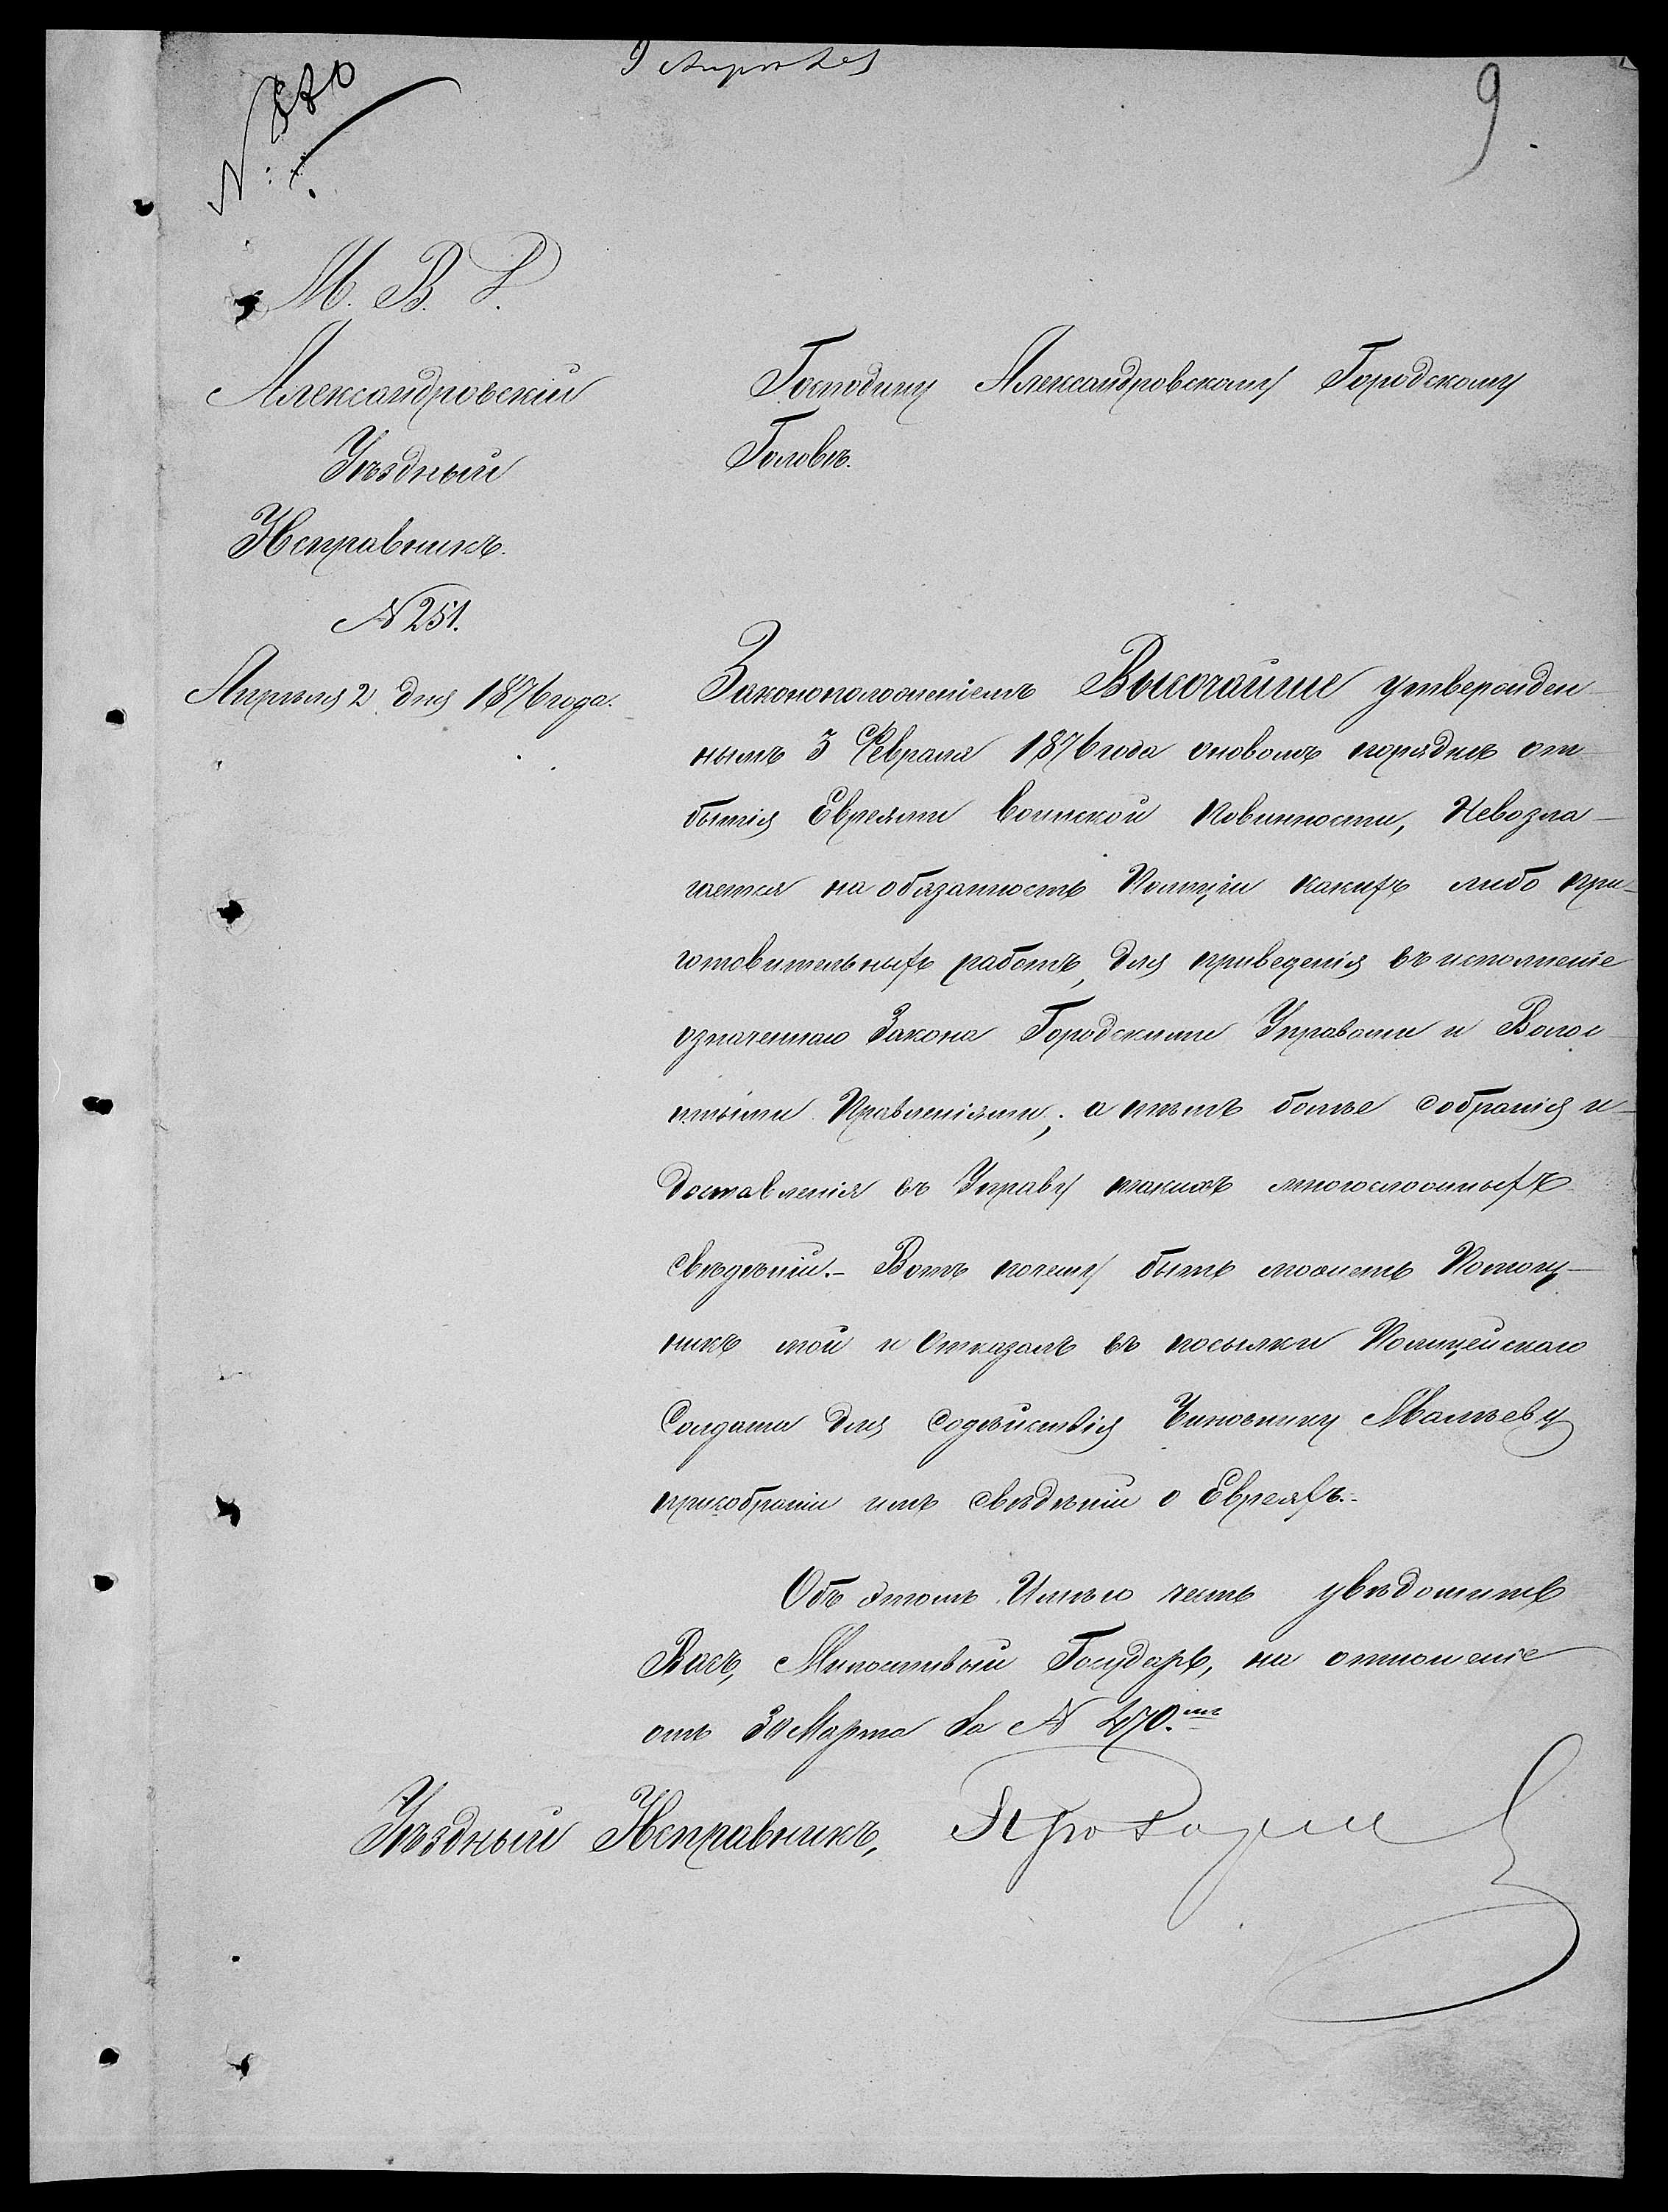 9 Апрѣля
9.
М. В. Д.
Александровскій
Уѣздный
Исправникъ.
№ 251.
Апрѣля 2 дня 1876 года.
Господину Александровскому Городскому
Головѣ.
Законоположеніемъ Высочайше утвержден-
нымъ 3 Февраля 1876 года оновомъ порядкѣ от-
бытія Евреями воинской повинности, Невозла-
гается на обязанность Полиціи какихъ либо при-
готовительныхъ работъ, для приведенія въ исполненіе
означеннаго Закона Городскими Управами и Волос-
тными Правленіями; а тѣмъ болѣе собранія и
доставленія въ Управу такихъ многосложныхъ
свѣдѣній.- Вотъ почему быть можетъ Помощ-
никъ мой и Отказалъ въ посылки Полицейскаго
Солдата для содѣйствія Чиновнику Малѣеву
присобраніи имъ свѣдѣній о Евреяхъ.-
Объ этомъ Имѣю честь увѣдомить
Васъ, Милостивый Государь, на отношеніе
отъ 30 Марта за № 470.мъ
Уѣздный Исправникъ,